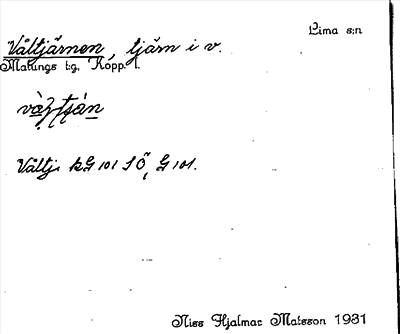 Lima s:n
Våltjärnen, tjärn i v.
Malungs t:g, Kopp. l.
Våltj. kG 101 SÖ, G 101.
Niss Hjalmar Matsson 1931